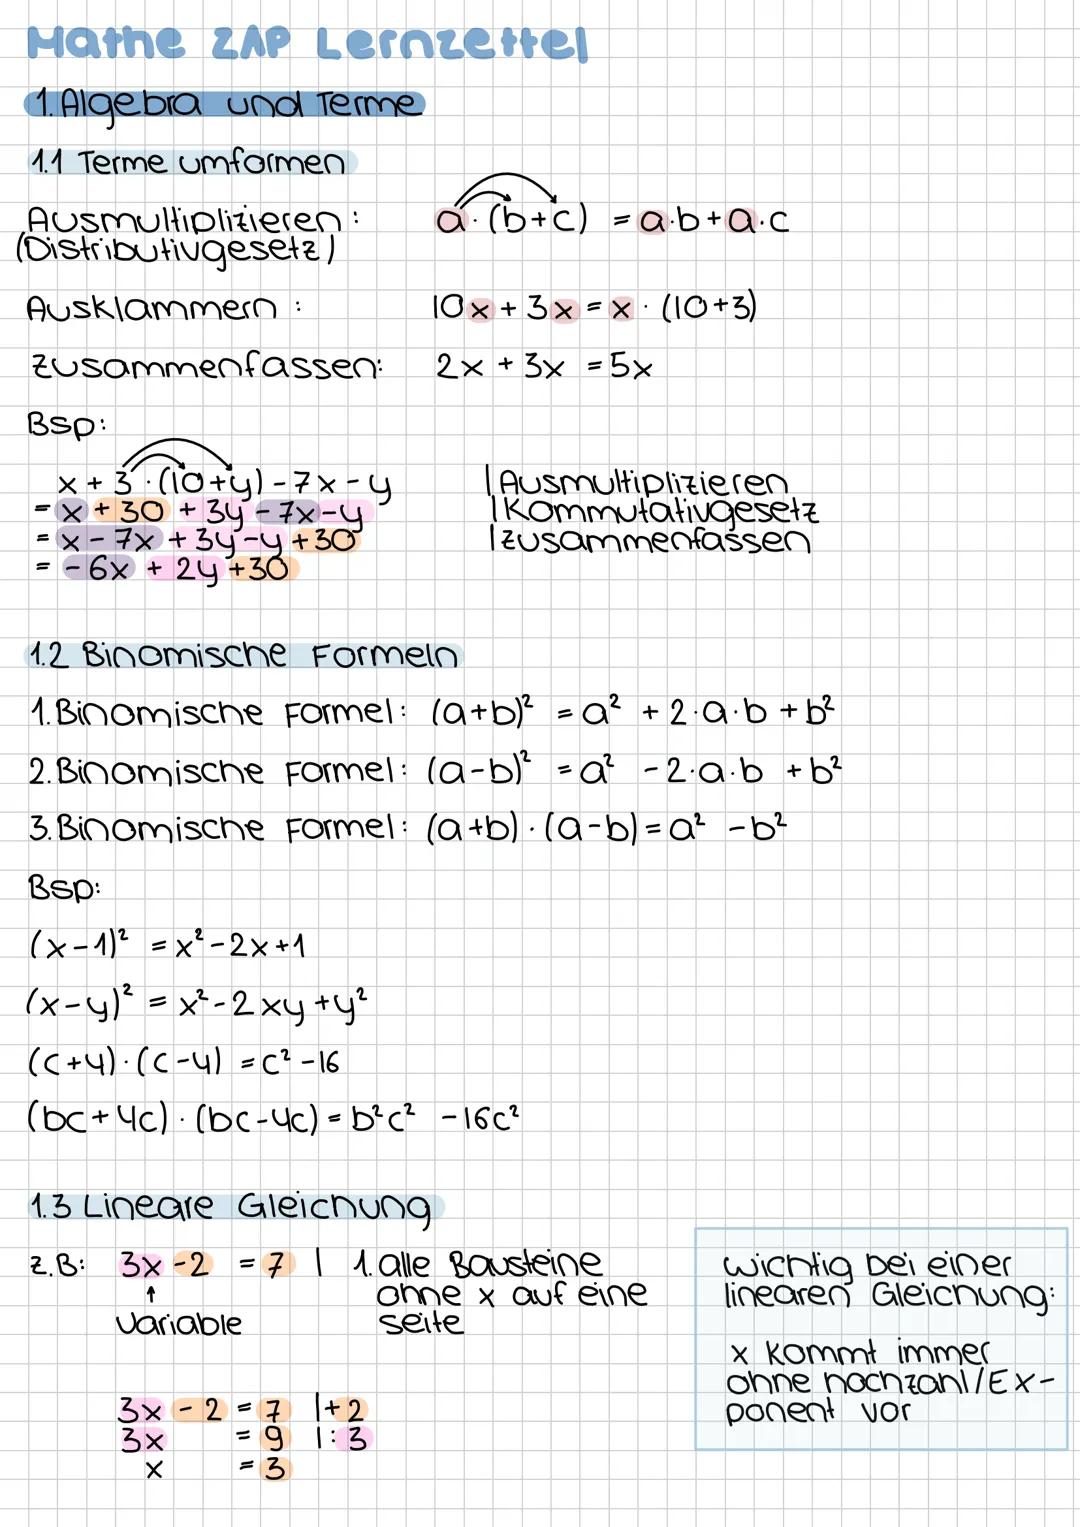 Mathe ZAP Lernzettel
1. Algebra und Terme
1.1 Terme umformen
Ausmultiplizieren: a · (b+c) = a·b+a·c
(Distributivgesetz)
Ausklammern: 10x + 3x = x · (10+3)
Zusammenfassen: 2x + 3x = 5x
Bsp:
x + 3 · (10+y) - 7x - y | Ausmultiplizieren
= x + 30 + 3y - 7x - y | Kommutativgesetz
= x - 7x + 3y - y + 30 | zusammenfassen
= - 6x + 2y + 30
1.2 Binomische Formeln
1. Binomische Formel: (a+b)² = a² + 2·a·b + b²
2. Binomische Formel: (a-b)² = a² - 2·a·b + b²
3. Binomische Formel: (a+b) · (a-b) = a² - b²
Bsp:
(x-1)² = x² - 2x + 1
(x-y)² = x² - 2xy + y²
(c+4) · (c-4) = c² - 16
(bc+4c) · (bc-4c) = b²c² - 16c²
1.3 Lineare Gleichung
z.B: 3x - 2 = 7 | 1. alle Bausteine
ohne x auf eine
↑
Variable seite
3x - 2 = 7 |+2
3x = 9 |:3
x = 3
wichtig bei einer
linearen Gleichung:
x kommt immer
ohne hochzahl/Ex-
ponent vor